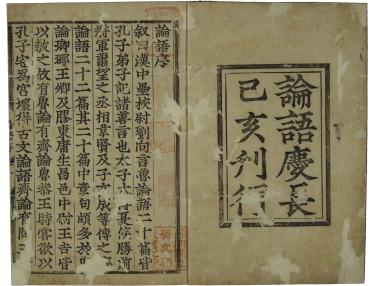 論語慶長
己亥刊行
論語序
叙曰漢中壘校尉劉向言魯論語二十篇皆
孔子弟子記諸善言也太子大傅夏侯勝前
將軍蕭望之丞相韋賢及子玄成等傳之齊
論語二十二篇其二十篇中章句頗多於魯
論琅邪王卿及膠東庸生昌邑中尉王吉皆
以敎之故有魯論有齊論魯恭王時嘗欲以
孔子宅爲宮壞得古文論語齊論有問